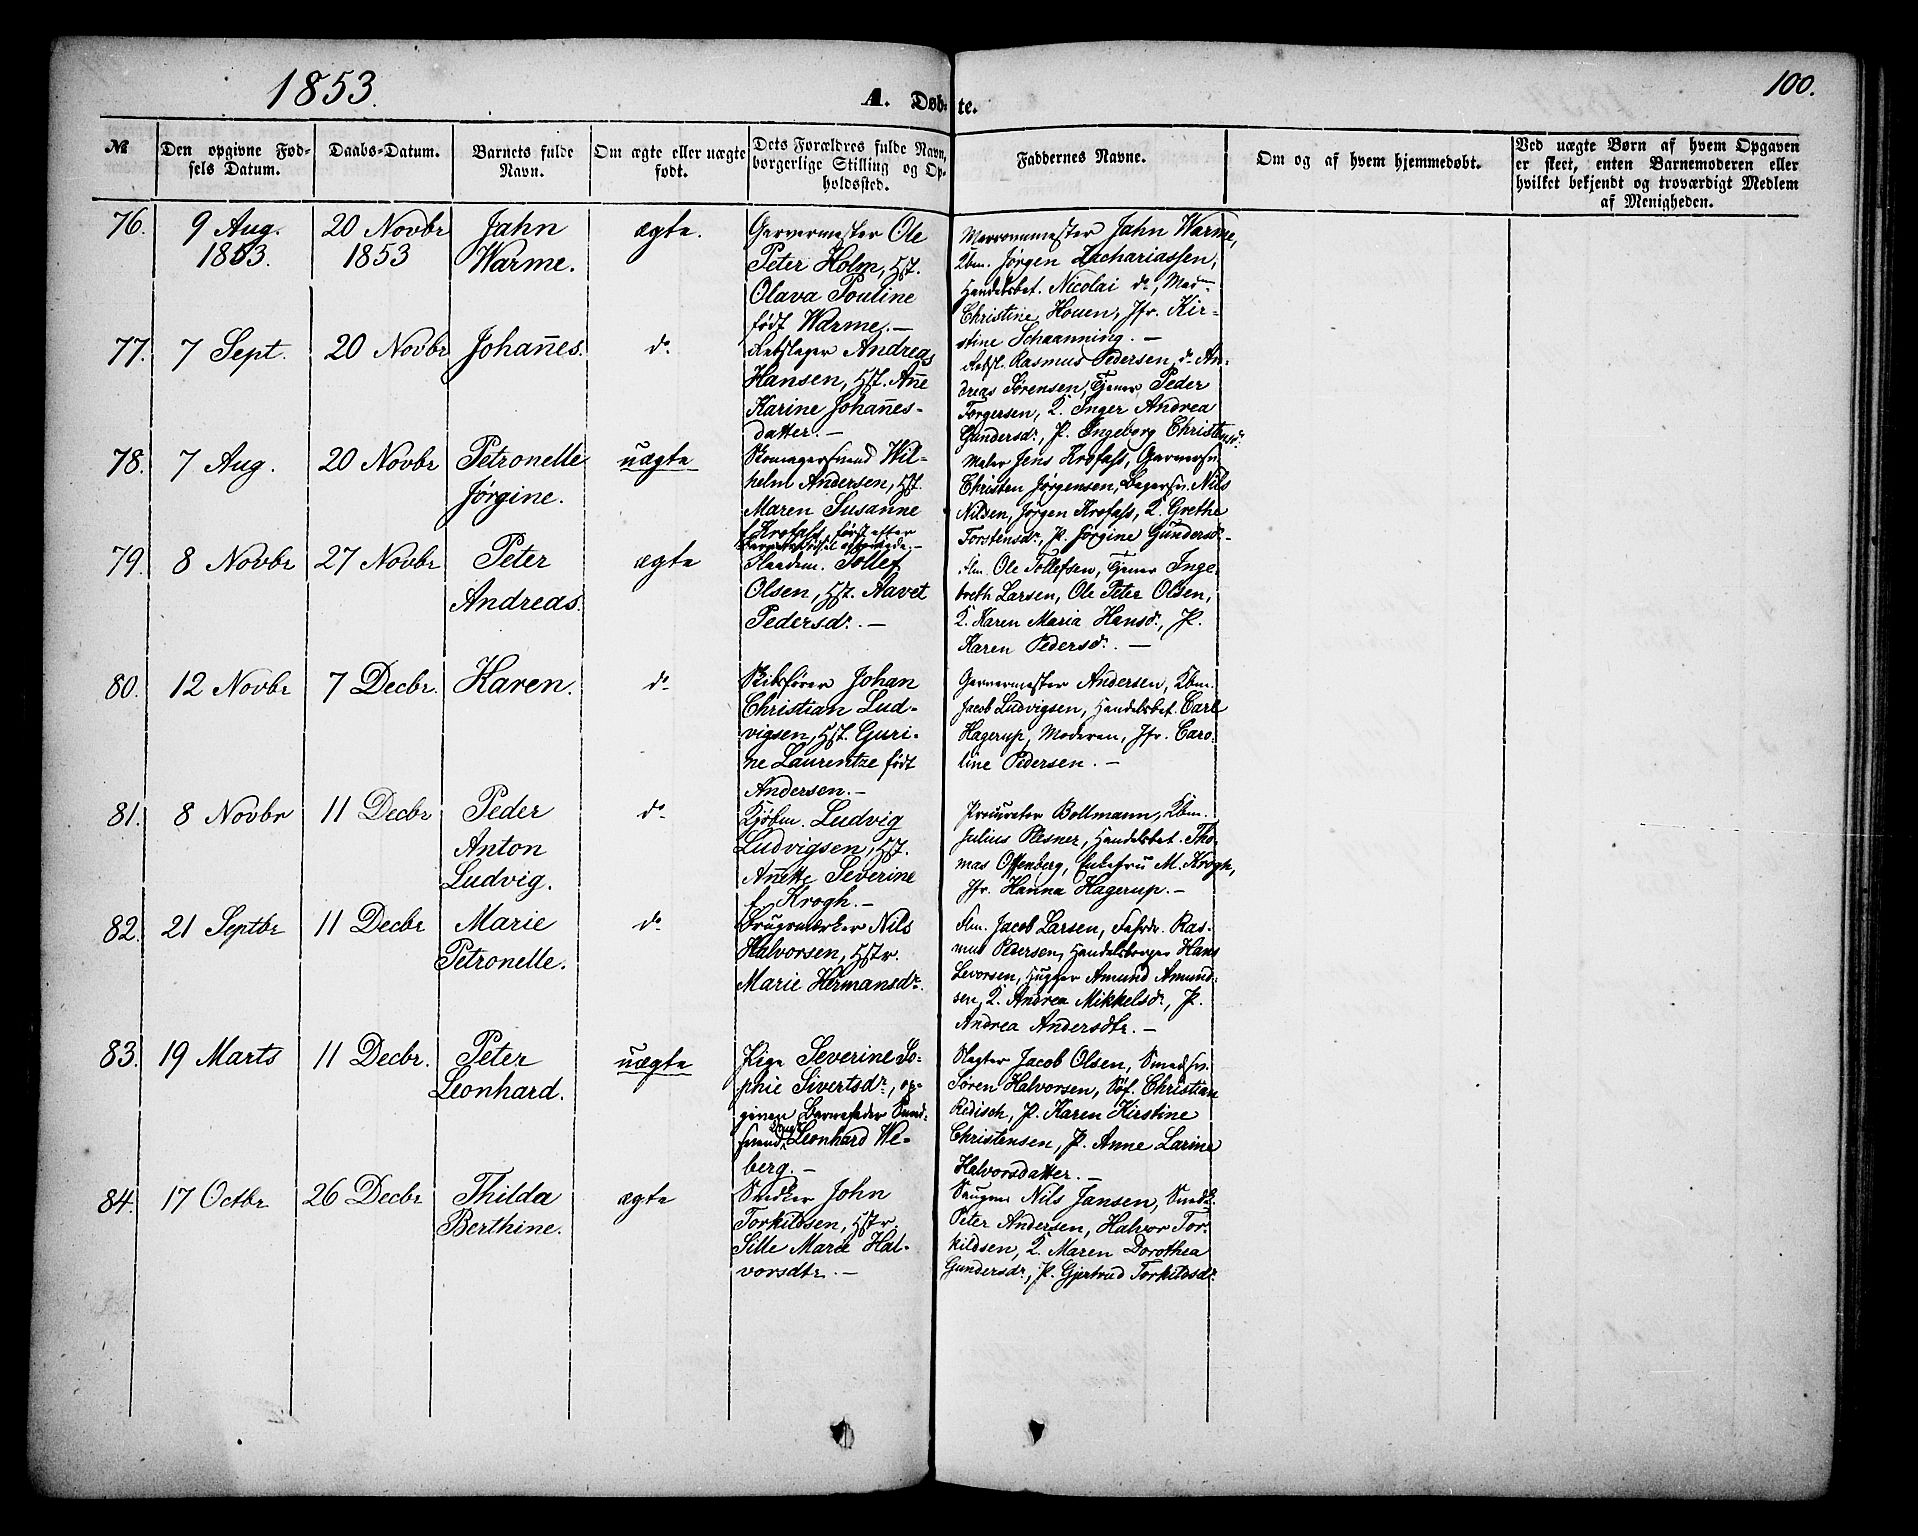 1853.
A. Døbte.
100.
№
Den opgivne Fød-
sels Datum.
Daabs-Datum.
Barnets fulde
Navn.
Om ægte eller uægte
født.
Dets Forældres fulde Navn,
borgerlige Stilling og Op-
holdssted.
Faddernes Navne.
Om og af hvem hjemmedøbt.
Ved uægte Børn af hvem Opgaven
er skeet, enten Barnemoderen eller
hvilket bekjendt og troværdigt Medlem
af Menigheden.
76.
9 Aug.
1853.
20 Novbr
1853
Jahn
Warme.
ægte.
Garvermester Ole
Peter Holm, Hst.
Olava Pouline
født Warme. —
Jahn Warme,
Kbm. Jørgen Zachariassen,
Handelsbet. Nicolai do, Mad.
Christine Houen, Jfr. Kir-
stine Schaanning. —
77.
7 Sept.
20 Novbr
Johan̄es.
do
Rebslager Andreas
Hansen, Hst. An̄e
Karine Johan̄es-
datter. —
Rebsl. Rasmus Pedersen, do An-
dreas Sørensen, Tjener Peder
Torgersen, K. Inger Andrea
Gundersdr, P. Ingeborg Christensdr
78.
7 Aug.
20 Novbr
Petronelle
Jørgine.
uægte
Skomagersvend Wil-
helm Andersen, Hst.
Maren Susanne
f. Krefass, først efter
Barnets Fødsel ægteviede. —
Maler Jens Krefass, Garversv.
Christen Jørgensen, Bagersv. Nils
Nilsen, Jørgen Krefass, K. Grethe
Torstensdr, P. Jørgine Gundersdr —
79.
8 Novbr
27 Novbr
Peter
Andreas.
ægte
Tollef
Olsen, Hst. Aavet
Pedersdr. —
Flm. Ole Tollefsen, Tjener Inge-
breth Larsen, Ole Peter Olsen,
K. Karen Maria Hansdr, P.
Karen Pedersdr. —
80.
12 Novbr
7 Decbr.
Karen.
do
Skibsfører Johan
Christian Lud-
vigsen, Hst. Guri-
ne Laurentze født
Andersen. —
Garvermester Andersen, Kbm.
Jacob Ludvigsen, Handelsbet. Carl
Hagerup, Moderen, Jfr. Caro-
line Pedersen. —
81.
8 Novbr
11 Decbr
Peder
Anton
Ludvig.
do
Kjøbm. Ludvig
Ludvigsen, Hst.
An̄ette Severine
f. Krogh. —
Procurator Bollmann, Kbm.
Julius Plesner, Handelsbet. Tho-
mas Offenberg, Enkefru M. Krogh,
Jfr. Hanna Hagerup. —
82.
21 Septbr
11 Decbr
Marie
Petronelle.
do
Brugsmerker Nils
Halvorsen, Hstr.
Marie Hermansdr.
Flm. Jacob Larsen, Ras-
mus Pedersen, Handelsborger Hans
Levorsen, Hugger Amund Amund-
sen, K. Andrea Mikkelsdr, P.
Andrea Andersdtr. —
83.
19 Marts
11 Decbr.
Peter
Leonhard.
uægte
Pige Severine So-
phie Sivertsdr, op-
given Barnefader
Leonhard We-
berg. —
Slagter Jacob Olsen, Smedsv.
Søren Halvorsen, Søf. Christian
Redisch, P. Karen Kirstine
Christensen, P. Anne Larine
Halvorsdatter. —
84.
17 Octbr
26 Decbr
Thilda
Berthine.
ægte
Snedker John
Torkildsen, Hstr.
Sille Marie Hal-
vorsdtr. —
Nils Jansen, Snedk.
Peter Andersen, Halvor Tor-
kildsen, K. Maren Dorothea
Gundersdr, P. Gjertrud Torkildsdr